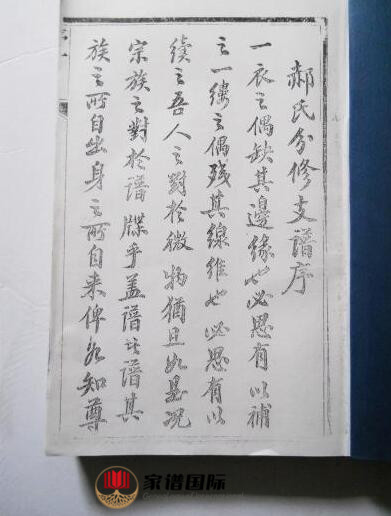 郝氏分修支譜序
一衣之偶缺其邊緣也必思有以補
之一縷之偶残其線維也必思有以
續之吾人之對於微物猶且如是况
宗族之對於譜牒乎盖譜也譜其
族之所自出身之所自来俾知尊
家谱国际